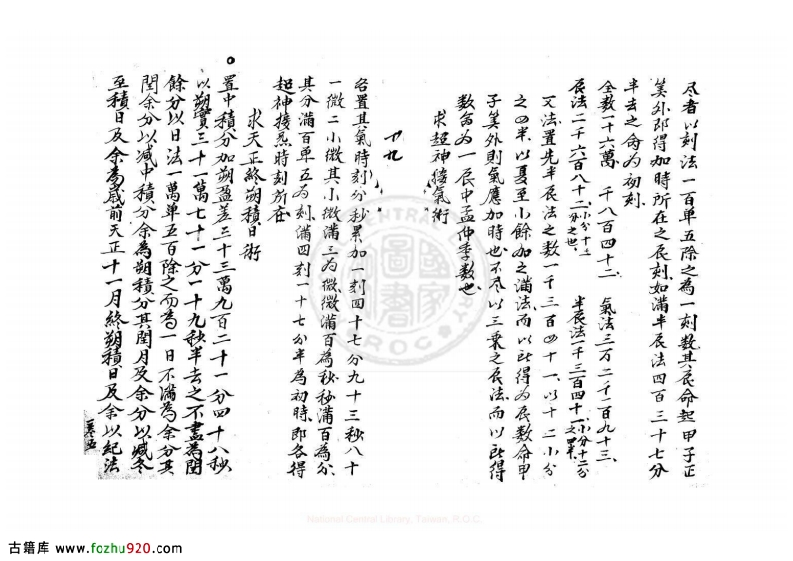 尽者以刻法一百单五除之為一刻数其辰命起甲子正
筭外即得加時所在之辰刻如满半辰法四百三十七分
半去之命為初刻
全数一十六萬 千八百四十二 氣法三万二千一百九十三
辰法二千六百八十二小分十二分之也 半辰法一千三百四十一小分十二分之四半
又法置先半辰法之数一千三百四十一以十二小分
之四半以夏至小餘加之满法而以所得為辰数命甲
子筭外則氣應加時也不尽以三乗之辰法而以所得
数命為一辰中孟仲季数也
求超神接氣術
卄九
各置其氣時刻分秒累加一刻四十七分九十三秒八十
一微二小微其小微满三為微微满百為秒秒满百為分
其分满百单五為刻满四刻一十七分半為初時即各得
超神接炁時刻所在
求天正終朔積日術
置中積分加朔盈差三十三萬九百二十一分四十八秒
以朔實三十一萬七十一分一十九秋半去之不盡為閏
餘分以日法一萬单五百除之而為一日不满為余分其
閏余分以减中積分余為朔積分其閏月及余分以减冬
至積日及余為歲前天正十一月終朔積日及余以紀法
國家圖書館
National Central Library, Taiwan, R.O.C.
古籍库 www.fozhu920.com